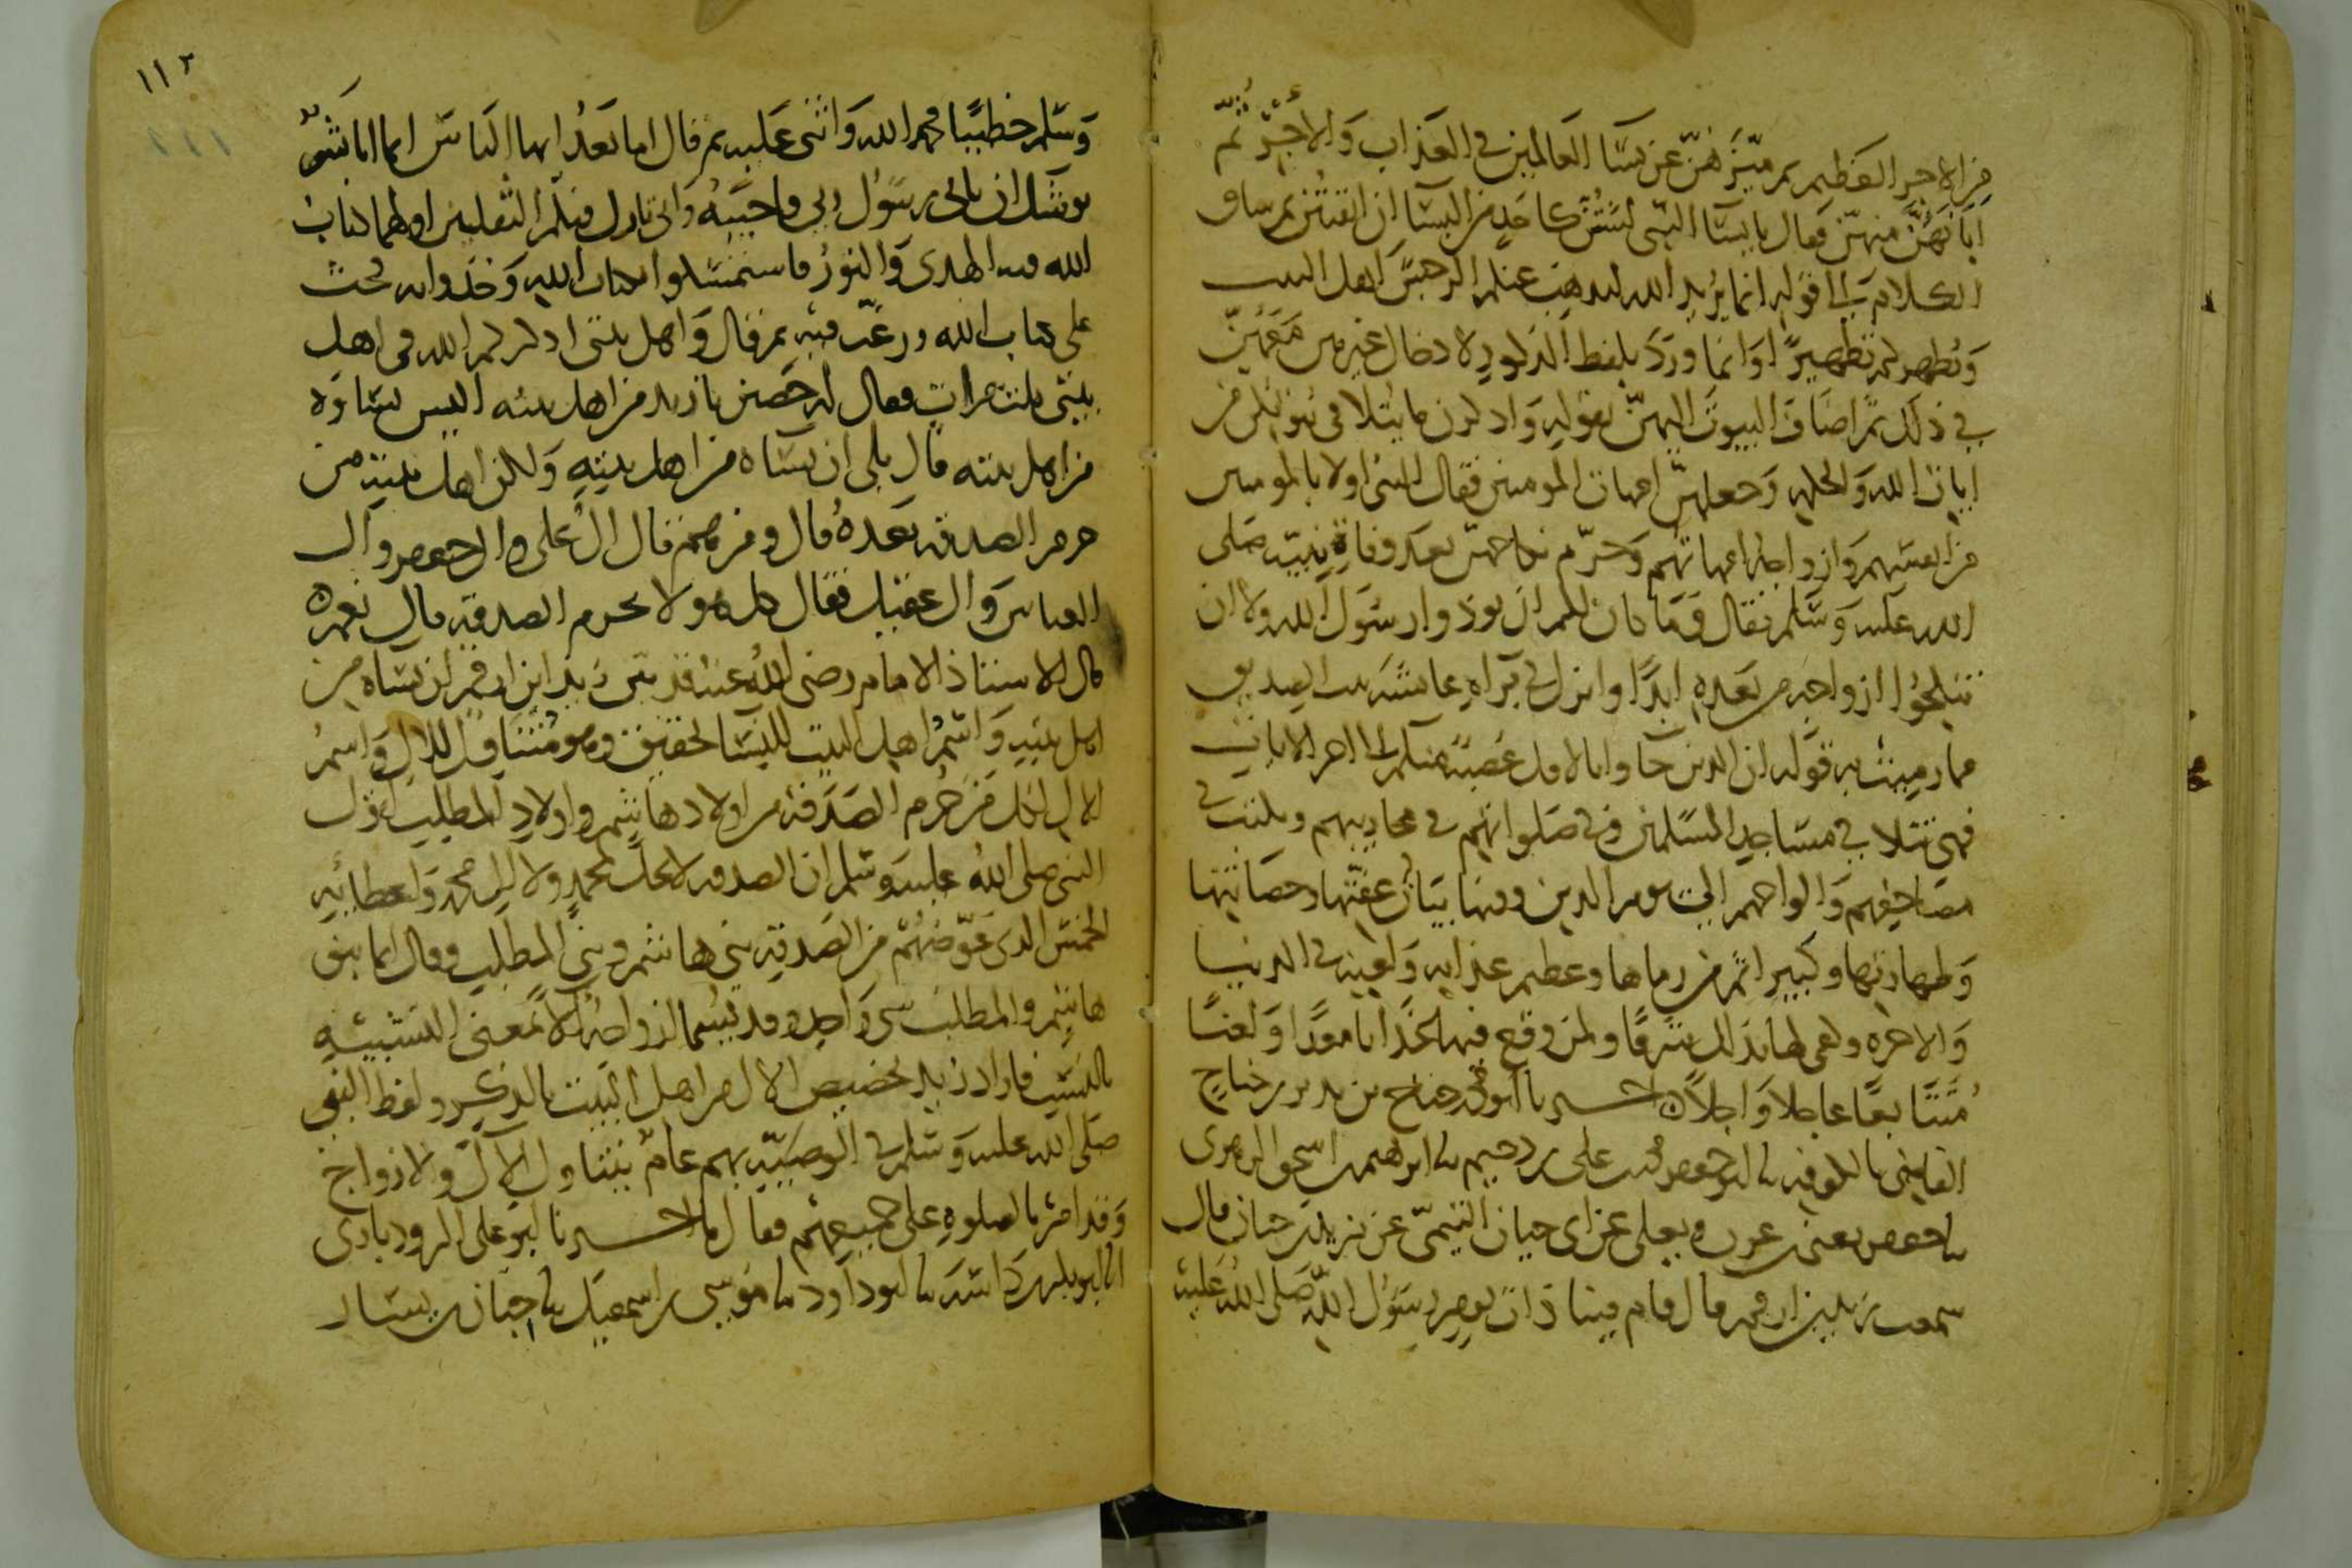 من الاجر العظيم ثم ميّزهنّ عن نسا العالمين في العذاب والاجر ثم
ابانهنّ منهنّ فقال يا نسا النبي لستن كاحد من النسا ان اتقيتن ثم ساق
الكلام الى قوله انما يريد الله ليذهب عنكم الرجس اهل البيت
ويطهركم تطهيرا وانما ورد بلفظ الذكور لادخال غيرهن معهنّ
في ذلك ثم اضاف البيوت اليهنّ بقوله واذكرن ما يتلا في بيوتكن من
ايات الله والحكمه وجعلهنّ امهات المومنين فقال النبي اولا بالمومنين
من انفسهم وازواجه امهاتهم وحرّم نكاحهنّ بعد وفاة نبيّه صلى
الله عليه وسلم فقال وما كان لكم ان توذوا رسول الله ولا ان
تنكحوا ازواجه من بعده ابدا وانزل في براه عايشه بنت الصديق
مما رميت به قوله ان الذين جاوا بالافك عصبة منكم الى اخر الايات
فهى تتلا في مساجد المسلمين وفي صلواتهم في محاريبهم وتكتب في
مصاحفهم والواحهم الى يوم الدين وفيها بيان عفّتها وحصانتها
وطهارتها وكبير اثم من رماها وعظيم عذابه ولعينه في الدنيا
والاخره وكفى لها بذلك شرفا ولمن وقع فيها عذابا معدّا ولعنا
متتابعا عاجلا واجلا اخبرنا ابو محمد جناح بن نذير بن جناح
القاضي بالكوفه نا ابو جعفر محمد بن على بن دحيم نا ابراهيم بن اسحق الزهرى
نا جعفر يعنى بن عون ويعلى عن ابى حيان التيمىّ عن يزيد بن حيان قال
سمعت زيد بن ارقم قال قام فينا ذات يوم رسول الله صلى الله عليه
١١٢
وسلم خطيبا فحمد الله واثنى عليه ثم قال اما بعد ايها الناس انما انا بشر
يوشك ان ياتى رسول ربى فاجيبه وانى تارك فيكم الثقلين اولهما كتاب
الله فيه الهدى والنور فاستمسكوا بكتاب الله وخذوا به فحث
على كتاب الله ورغّب فيه ثم قال واهل بيتى اذكركم الله فى اهل
بيتى ثلث مرات فقال له حصين يا زيد من اهل بيته اليس نساوه
من اهل بيته قال بلى ان نساه من اهل بيته ولكن اهل بيته من
حرم الصدقه بعده قال ومن هم قال ال على وال جعفر وال
العباس وال عقيل فقال كل هولا يحرم الصدقه قال نعم
قال الاستاذ الامام رضى الله عنه قد بيّن زيد ابن ارقم ان نساه من
اهل بيته واسم اهل البيت للنسا تحقيق وهو متناول للال واسم
الال لكل من حرم الصدقه من اولاد هاشم واولاد المطلب لقول
النبى صلى الله عليه وسلم ان الصدقه لا تحل لمحمد ولا لال محمد واعطائه
الخمس الذى عوّضهم من الصدقه بني هاشم وبني المطلب وقال انما بنو
هاشم والمطلب شى واحد وقد يسما ازواجه الا بمعنى التشبيه
بالنسب فاراد زيد تخصيص الال من اهل البيت بالذكر ولفظ النبى
صلى الله عليه وسلم في الوصيّة بهم عامّ يتناول الال والازواج
وقد امرنا بالصلوه على جميعهم فقال ما اخبرنا ابو على الروذبادى
انا ابو بكر بن داسه نا ابو داود نا موسى بن اسمعيل نا حبان بن يسار